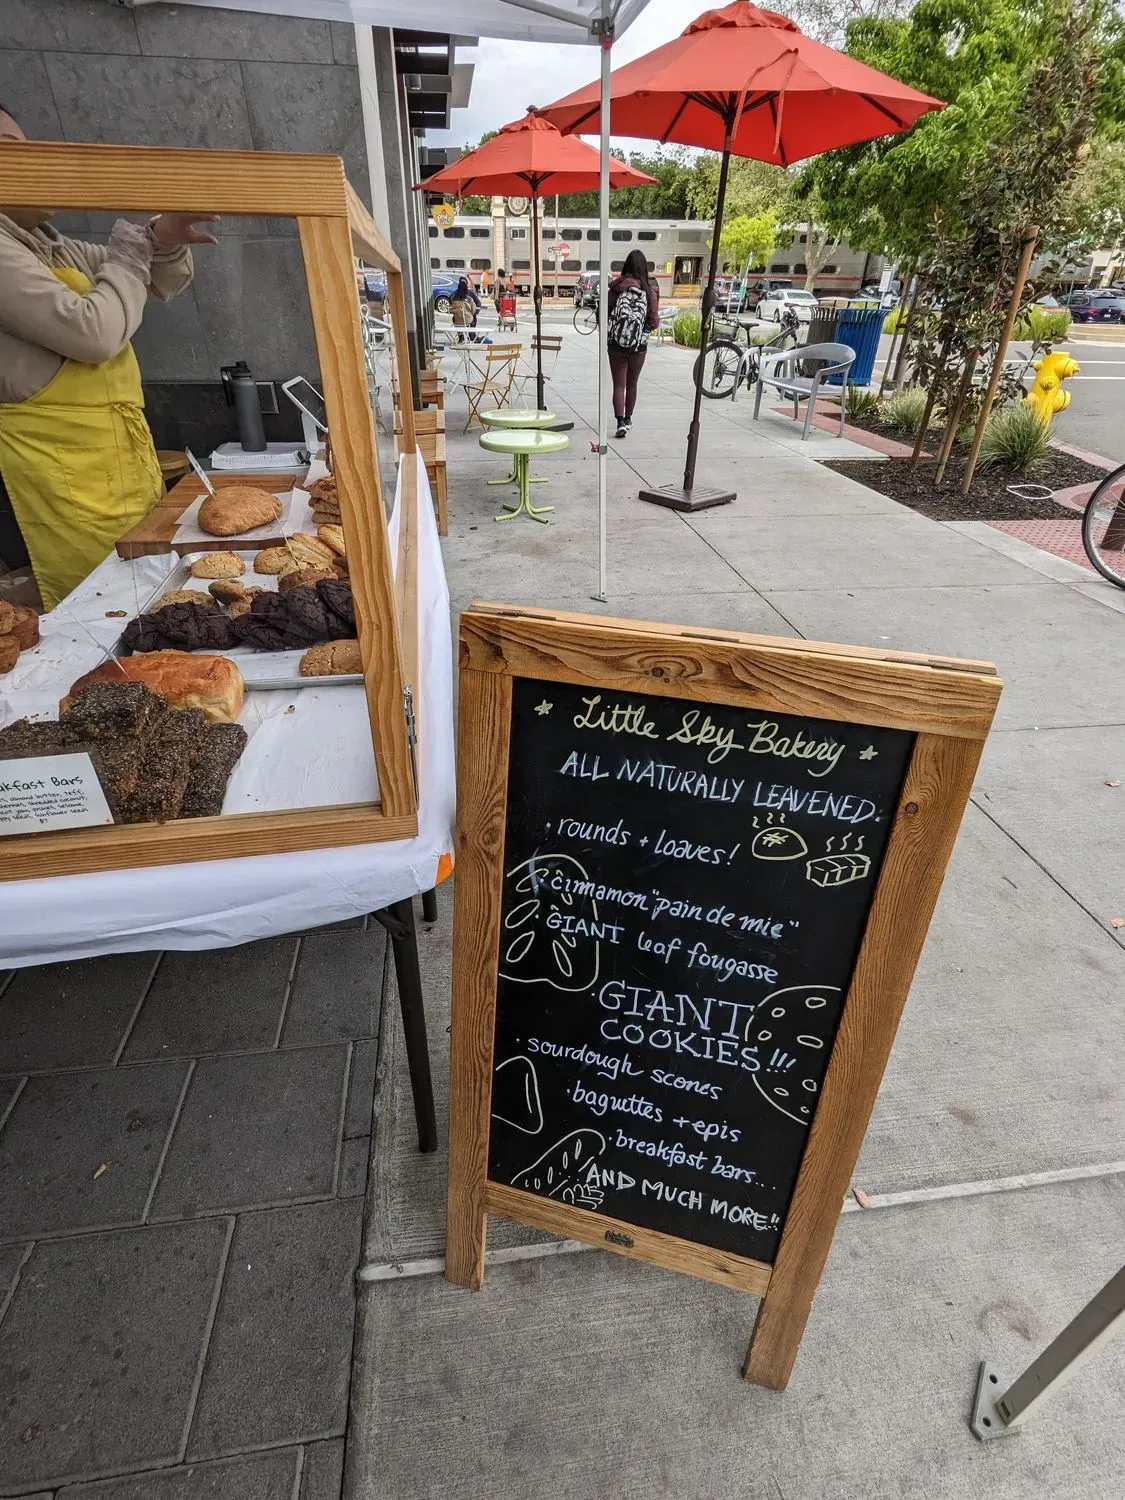 ★ Little Sky Bakery ★
ALL NATURALLY LEAVENED:
· rounds + loaves!
· cinnamon "pain de mie"
· GIANT leaf fougasse
· GIANT
COOKIES!!!
· sourdough scones
· baguettes + epis
· breakfast bars...
AND MUCH MORE!!
akfast Bars
almond butter, teff,
shredded coconut,
jam, prunes, sesame,
seeds, sunflower seeds
$7